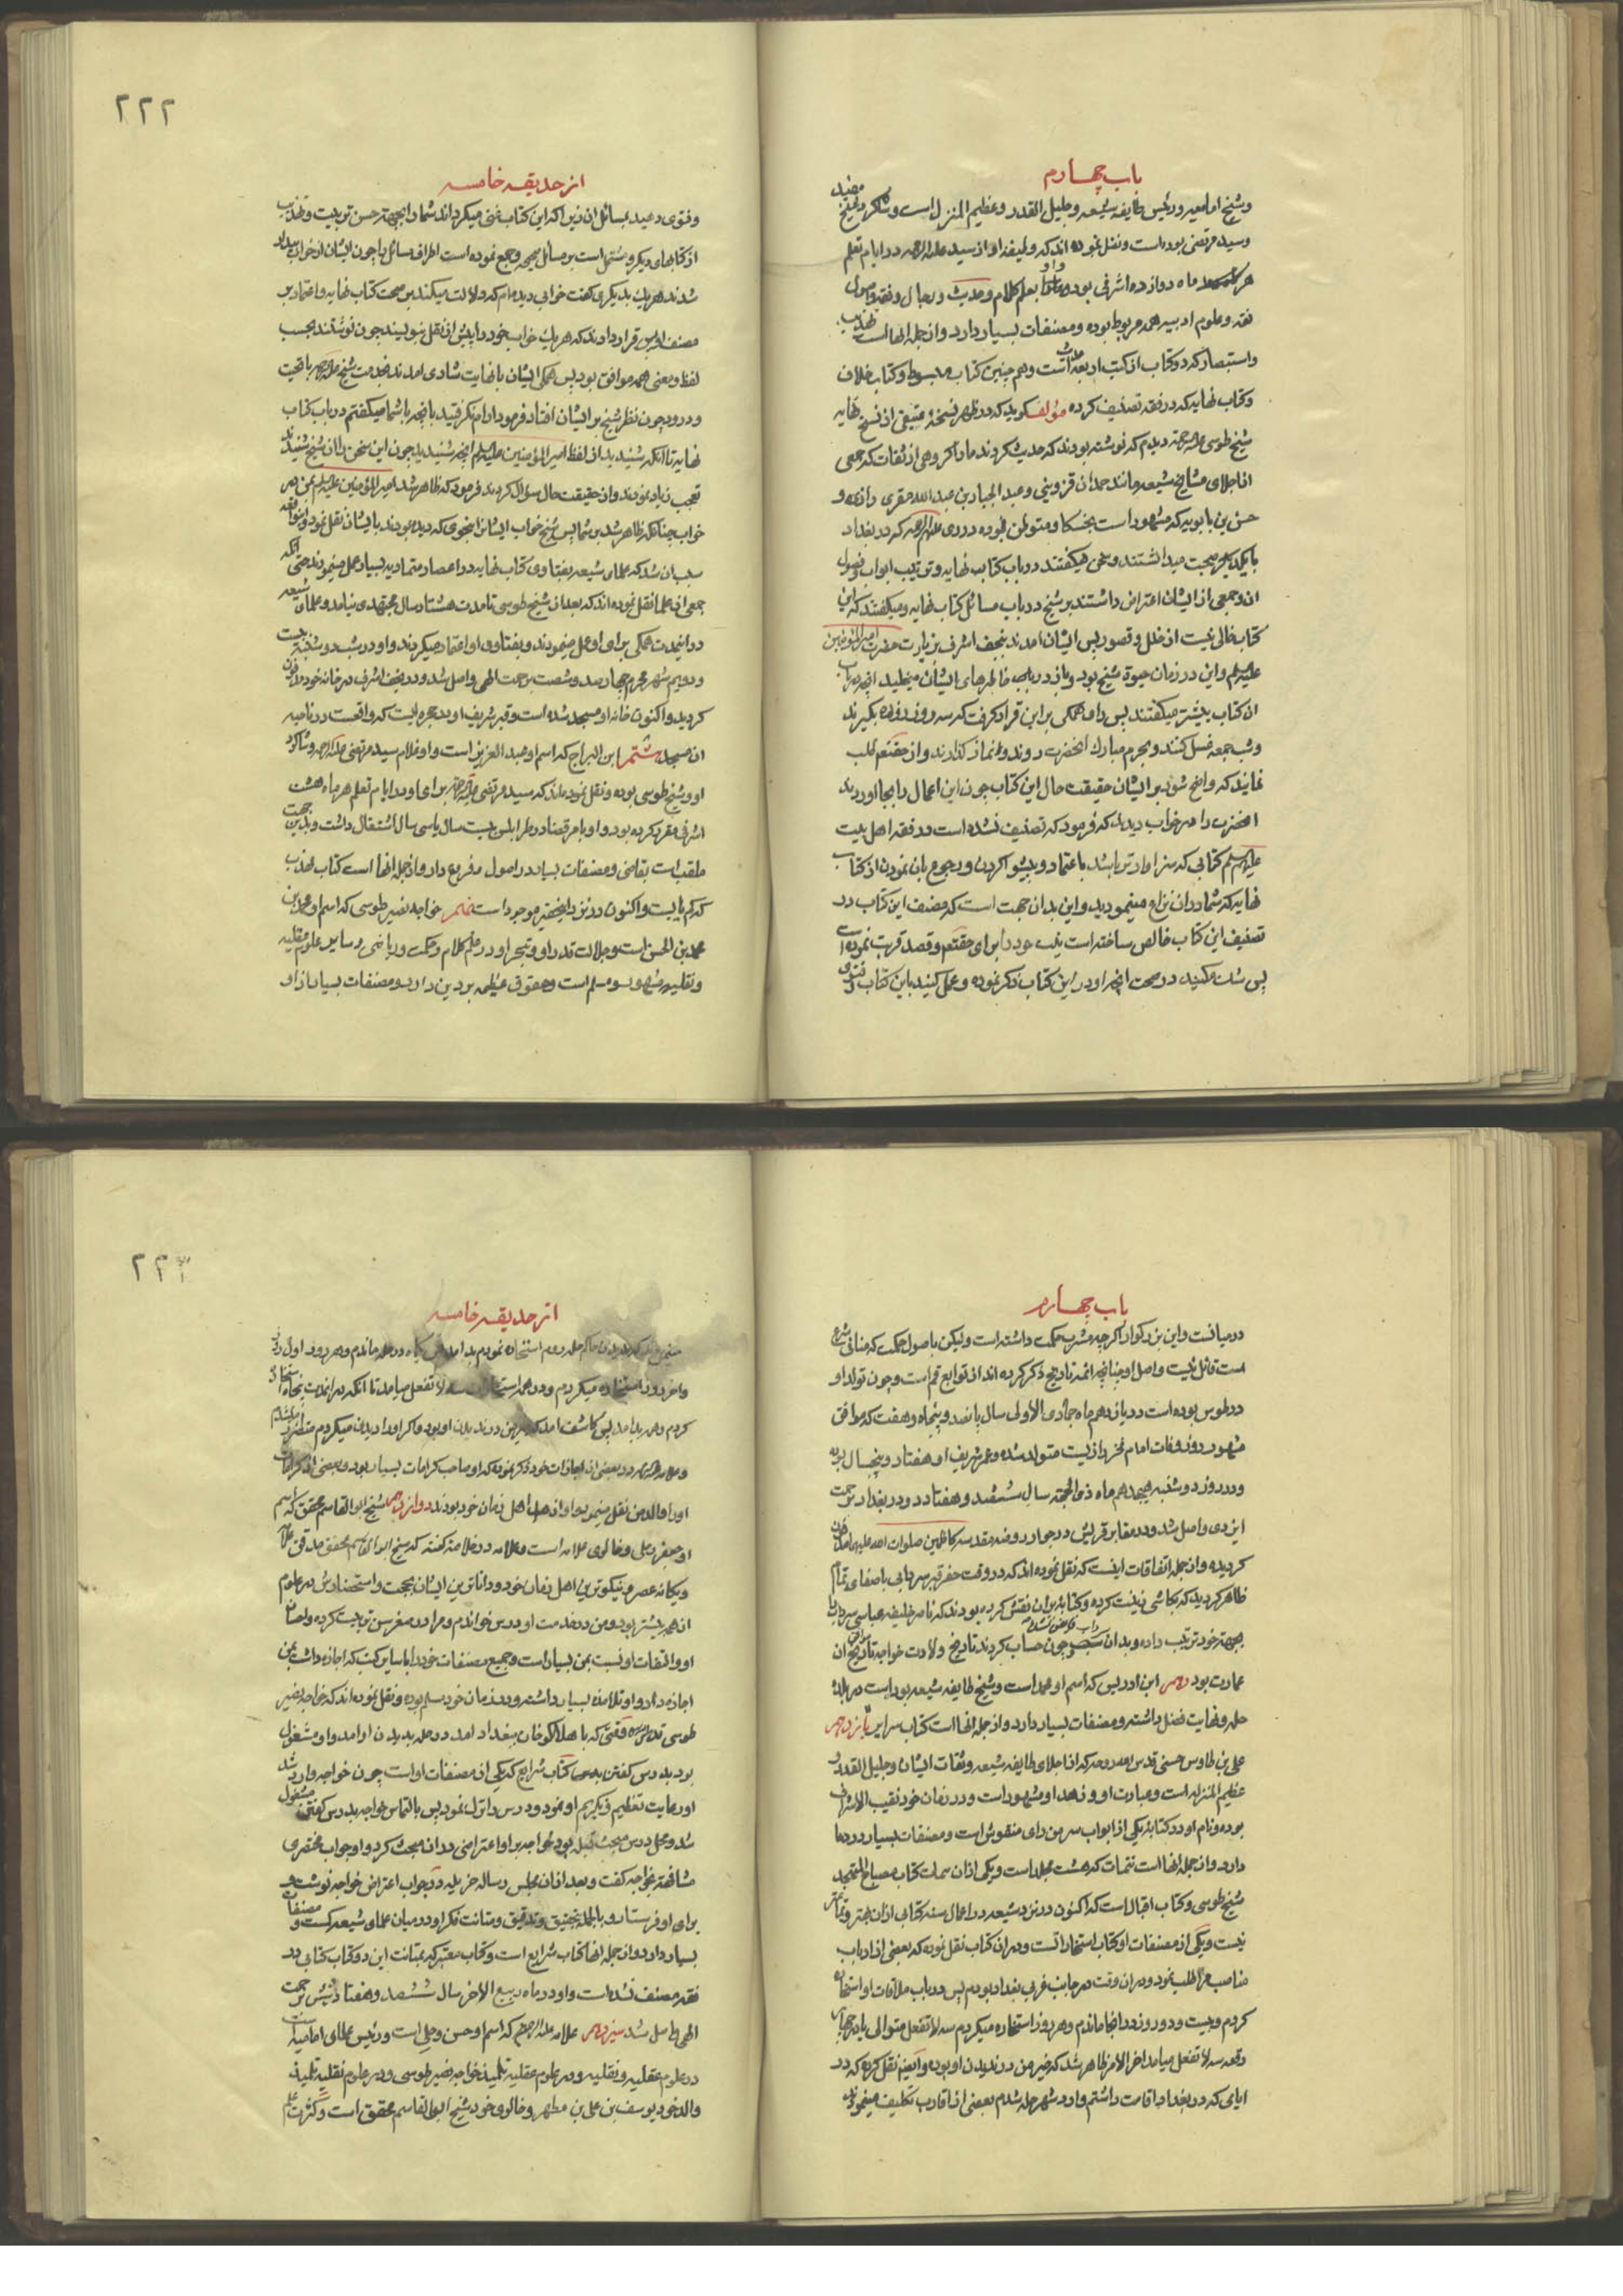 باب چهارم
وشیخ امامیه ورئیس طایفه شیعه وجلیل القدر وعظیم المنزل است وشاکرد شیخ مفید
وسید مرتضی بوده است ونقل نموده اند که وظیفه او از سید علیه الرحمه در ایام تعلم
هر ماه دوازده اشرفی بوده و او بعلم کلام وحدیث ورجال وفقه واصول
فقه وعلوم ادبیه همه مربوط بوده ومصنفات بسیار دارد واز جمله انها است تهذیب
واستبصار که دو کتاب از کتب اربعه است وهم چنین کتاب مبسوط وکتاب خلاف
وکتاب نهایه که در فقه تصنیف کرده مؤلف کوید که در ظهر نسخه عتیقی از نسخ نهایه
شیخ طوسی دیدم که نوشته بودند که حدیث کردند ما را کروهی از ثقات که جمعی
از اجلای مشایخ شیعه مانند حمدان قزوینی وعبد الجبار بن عبد الله مقری رازی و
حسن بن بابویه که مشهور است بحسکا ومتوطن بوده در ری علیهم الرحمه که در بغداد
با یکدیکر صحبت میداشتند وسخن میکفتند در باب کتاب نهایه وترتیب ابواب وفصول
ان وجمعی از ایشان اعتراض داشتند بر شیخ در باب مسائل کتاب نهایه ومیکفتند که این
کتاب خالی نیست از خلل وقصور پس ایشان امدند بنجف اشرف بزیارت حضرت امیر المؤمنین
علیه السلم واین در زمان حیوة شیخ بود وباز در باب خاطرهای ایشان میخلید انچه در باب
ان کتاب پیشتر میکفتند پس رای همکی بر این قرار کرفت که سه روز روزه بکیرند
وشب جمعه غسل کنند وبحرم مبارک انحضرت روند ونماز کذارند واز حقتعم طلب
نمایند که واضح شود بر ایشان حقیقت حال این کتاب چون این اعمال را بجا اوردند
انحضرت را در خواب دیدند که فرمود که تصنیف نشده است در فقه اهل بیت
علیهم السلم کتابی که سزاوارتر باشد باعتماد وپیشوا کردن ورجوع بان نمودن از کتاب
نهایه که شما در ان نزاع مینمودید واین بدان جهت است که مصنف این کتاب در
تصنیف این کتاب خالص ساخته است نیت خود را برای حقتعم وقصد قربت نموده است
پس شک مکنید در صحت انچه او در این کتاب ذکر نموده وعمل کنید باین کتاب وفتوی
٢٢٢
از حدیقه خامسه
وفتوی دهید بمسائل ان زیرا که این کتاب غنی میکرداند شما را بجهة حسن ترتیب وتهذیب
از کتابهای دیکر ومشتمل است بر مسائل صحیحه وجمع نموده است اطراف مسائل را چون ایشان از خواب بیدار
شدند هر یک بدیکری کفت خوابی دیده ام که دلالت میکند بر صحت کتاب نهایه واعتماد بر
مصنف او پس قرار دادند که هر یک خواب خود را پیش از نقل بنویسند چون نوشتند بحسب
لفظ ومعنی همه موافق بود پس همکی ایشان با نهایت شادی امدند بخدمت شیخ با تحیت
ودرود چون نظر شیخ بر ایشان افتاد فرمود ارام نکرفتید بانچه با شما میکفتم در باب کتاب
نهایه تا انکه شنیدید از لفظ امیر المؤمنین علیه السلم انچه شنیدید چون این سخن را از شیخ شنیدند
تعجب زیاد نمودند واز حقیقت حال سؤال کردند فرمود که ظاهر شد امیر المؤمنین علیه السلم بمن در
خواب چنانکه ظاهر شد بر شما پس شیخ خواب ایشان را بنحوی که دیده بودند با ایشان نقل نمود واین واقعه
سبب ان شد که علمای شیعه بفتاوی کتاب نهایه در اعصار متمادیه بسیار عمل مینمودند حتی انکه
جمعی از علما نقل نموده اند که بعد از شیخ طوسی تا مدت هشتاد سال مجتهدی نیامد وعلمای شیعه
در این مدت همکی برای او عمل مینمودند وبفتاوی او اعتماد میکردند واو در شب دوشنبه بیست
ودویم شهر محرم چهار صد وشصت برحمت الهی واصل شد ودر نجف اشرف در خانه خود مدفون
کردید واکنون خانه او مسجد شده است وقبر شریف او در حجره ایست که واقعست در ناحیه
ان مسجد هشتم ابن البراج که اسم او عبد العزیز است واو غلام سید مرتضی علیه الرحمه وشاکرد
او وشیخ طوسی بوده ونقل نموده اند که سید مرتضی برای او در ایام تعلم هر ماه هشت
اشرفی مقرر کرده بود واو بامر قضا در طرابلس بیست سال یا سی سال اشتغال داشت وبدین جهت
ملقب است بقاضی ومصنفات بسیار در اصول وفروع دارد واز جمله انها است کتاب مهذب
که کم یابست واکنون در نزد این حقیر موجود است نهم خواجه نصیر طوسی که اسم او محمد بن
محمد بن الحسن است وجلالت قدر او وتبحر او در علم کلام وحکمت وریاضی وسایر علوم عقلیه
ونقلیه مشهور ومسلم است وحقوق عظیمه بر دین دارد ومصنفات بسیار از او
باب چهارم
در میانست واین بزرکوار اکرچه مشرب حکمت داشته است ولیکن باصول حکمت که منافی شرع
است قائل نیست واصل او چنانچه ائمه تاریخ ذکر کرده اند از توابع قم است وچون تولد او
در طوس بوده است در یازدهم ماه جمادی الاولی سال پانصد وپنجاه وهفت که موافق
مشهور روز وفات امام فخر رازیست متولد شده وعمر شریف او هفتاد وپنجسال بوده
ودر روز دوشنبه هیجدهم ماه ذی الحجه سال ششصد وهفتاد ودو در بغداد برحمت
ایزدی واصل شد ودر مقابر قریش در جوار روضه مقدسه کاظمین صلوات الله علیهما مدفون
کردیده واز جمله اتفاقات اینست که نقل نموده اند که در وقت حفر قبر سردابی باصفای تمام
ظاهر کردید که بکاشی زینت کرده وکتابه بران نقش کرده بودند که ناصر خلیفه عباسی سرداب را
بجهة خود ترتیب داده وبدان چون حساب کردند تاریخ ولادت خواجه با تاریخ ان
عمارت بود دهم ابن ادریس که اسم او محمد است وشیخ طایفه شیعه بوده است در بلده
حله ونهایت فضل داشته ومصنفات بسیار دارد واز جمله انها است کتاب سرایر یازدهم
علی بن طاوس حسنی قدس الله روحه که از اجلای طایفه شیعه وثقات ایشان وجلیل القدر و
عظیم المنزله است وعبادت او وزهد او مشهور است ودر زمان خود نقیب الاشراف
بوده ونام او در کتابه یکی از ابواب سر من رای منقوش است ومصنفات بسیار در دعا
دارد واز جمله انها است تتمات که هشت مجلد است ویکی از ان مهمات کتاب مصباح المتهجد
شیخ طوسی وکتاب اقبال است که اکنون در نزد شیعه در اعمال سنه کتابی از ان بهتر وتمامتر
نیست ویکی از مصنفات او کتاب استخاراتست ودر ان کتاب نقل نموده که بعضی از ارباب
مناصب مرا طلب نمود ودر ان وقت در جانب غربی بغداد بودم پس در باب ملاقات او استخاره
کردم وبیست ودو روز در انجا ماندم وهر روز استخاره میکردم سه لا تفعل متوالی یا در چهار
رقعه سه لا تفعل میامد اخر الامر ظاهر شد که خیر من در ندیدن او بوده وایضم نقل کرده که در
ایامی که در بغداد اقامت داشتم وارد شهر حله شدم بعضی از اقارب تکلیف مینمودند
٢٢٣
از حدیقه خامسه
حاکم حله روم استخاره نمودم بد امد یک ماه در حله ماندم وهر روز اول روز
واخر روز استخاره میکردم ودر همه استخارات سه لا تفعل میامد تا انکه در اندک پنجاه استخاره
کردم وهمه بد امد پس کاشف امد که خیر من در ندیدن او بوده واکر اورا دیدن میکردم متضرر میشدم
وعلامه در بعضی از اجازات خود ذکر نموده که او صاحب کرامات بسیار بود وبعضی از کرامات
اورا والد من نقل مینمود واو ازهد اهل زمان خود بودند دوازدهم شیخ ابو القاسم محقق که اسم
او جعفر وخالوی علامه است وعلامه در خلاصه کفته که شیخ ابو القاسم محقق مدقق علامه
ویکانه عصر ونیکوترین اهل زمان خود وداناترین ایشان بحجت واستحضارش در علوم
از همه بیشتر بود ومن در خدمت او درس خواندم ومرا در صغر سن تربیت کرده واحسان
او والتفات او نسبت بمن بسیار است وجمیع مصنفات خود را با سایر کتب که اجازه داشت بمن
اجازه داد واو تلامذه بسیار داشته ودر زمان خود مسلم بوده ونقل نموده اند که خواجه نصیر
طوسی قدس سره وقتی که با هلاکو خان ببغداد امد در حله بدیدن او امد واو مشغول
بود بدرس کفتن کتاب شرایع که یکی از مصنفات او است چون خواجه وارد شد
او رعایت تعظیم وتکریم او نمود ودرس را ترک نمود پس بالتماس خواجه بدرس کفتن مشغول
شد ومحل درس مبحث قبله بود خواجه بر او اعتراضی در ان مبحث کرد واو جواب مختصری
مشافهة بخواجه کفت وبعد از ان مجلس رساله جزیله در جواب اعتراض خواجه نوشت و
برای او فرستاد وبالجمله تحقیق وتدقیق ومتانت فکر او در میان علمای شیعه کم است ومصنفات
بسیار دارد واز جمله انها کتاب شرایع است وکتاب معتبر که بمتانت این دو کتاب کتابی در
فقه مصنف نشده است واو در ماه ربیع الاخر سال ششصد وهفتاد وشش برحمت
الهی واصل شد سیزدهم علامه علیه الرحمه که اسم او حسن وحلی است ورئیس علمای امامیه است
در علوم عقلیه ونقلیه ودر علوم عقلیه تلمیذ خواجه نصیر طوسی ودر علوم نقلیه تلمیذ
والد خود یوسف بن علی بن مطهر وخالوی خود شیخ ابو القاسم محقق است وکثرت علم